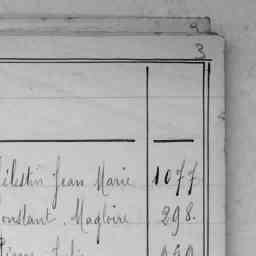 3
Célestin Jean Marie 1077
Constant. Magloire 298.